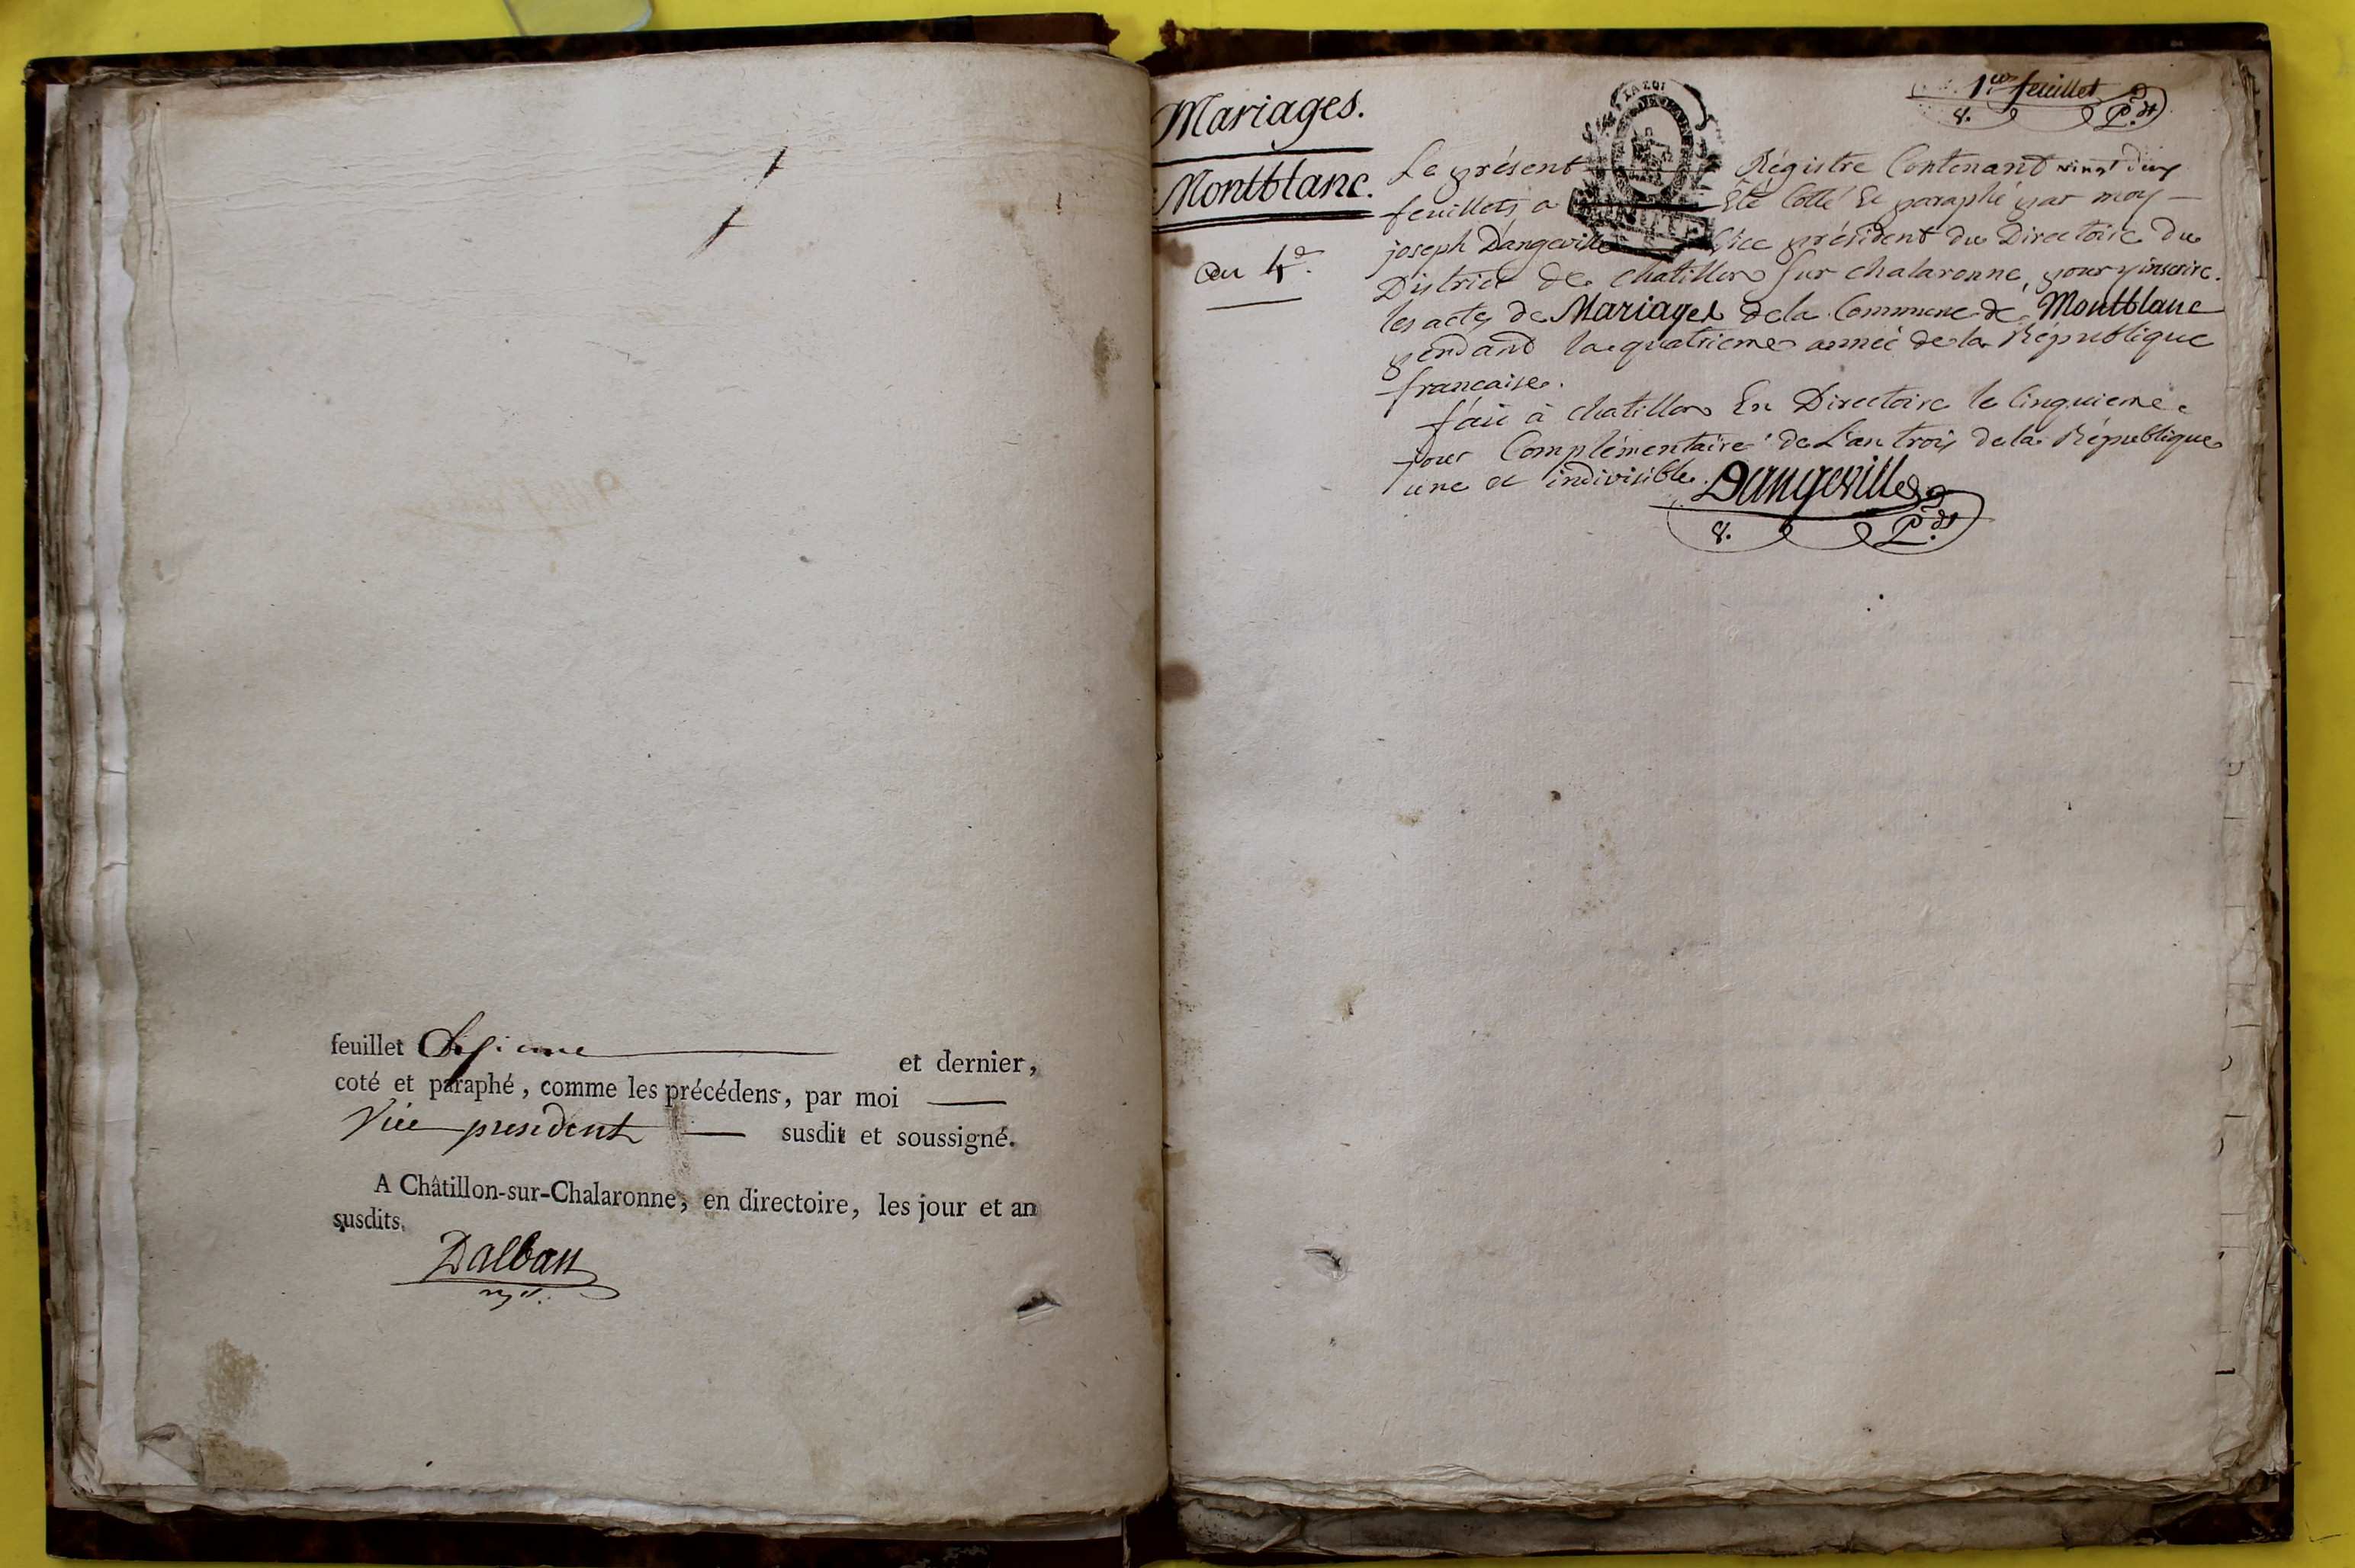 feuillet Sixieme et dernier,
coté et paraphé, comme les précédens, par moi
Vice president susdit et soussigné.
A Châtillon-sur-Chalaronne, en directoire, les jour et an
susdits.
Dalban
Mariages.
Montblanc.
an 4e.
1er feuillet
V. P.dt
LA LOI
Le présent Régistre Contenant vingt deux
feuillets, a Eté Cotté Et paraphé par moy
joseph Dangeville Vice président du Directoire du
District de chatillon sur chalaronne, pour y inscrire
les actes de Mariages de la Commune de Montblanc
pendant la quatrieme année de la République
francaise.
fait à chatillon En Directoire le Cinquieme
jour Complémentaire de L'an trois de la République
une et indivisible. Dangeville
V. P.dt